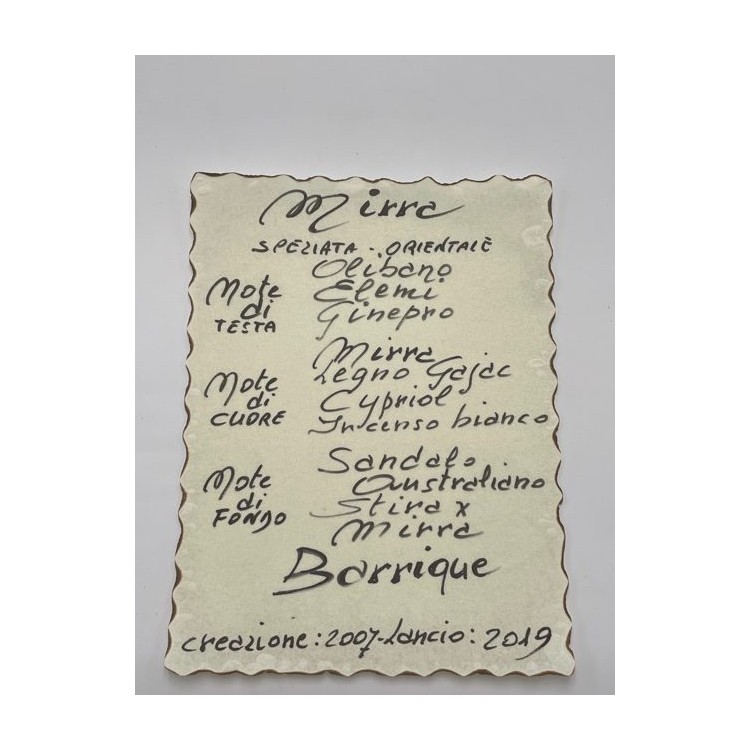 Mirra
SPEZIATA - ORIENTALE
Note di TESTA
Olibano
Elemi
Ginepro
Note di CUORE
Mirra
Legno Gajac
Cypriol
Incenso bianco
Note di FONDO
Sandalo
Australiano
Stirax
Mirra
Barrique
creazione: 2007 - Lancio: 2019